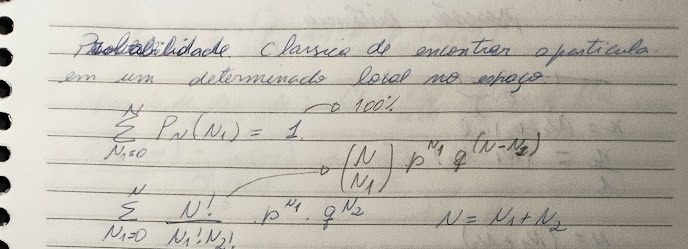 Probabilidade classica de encontrar a particula
em um determinado local no espaço
→ 100%
∑_{N₁=0}^{N} P_N(N₁) = 1.
→ (N N₁) · p^{N₁} q^{(N-N₁)}
∑_{N₁=0}^{N} N!/(N₁! N₂!) · p^{N₁} · q^{N₂} N = N₁ + N₂